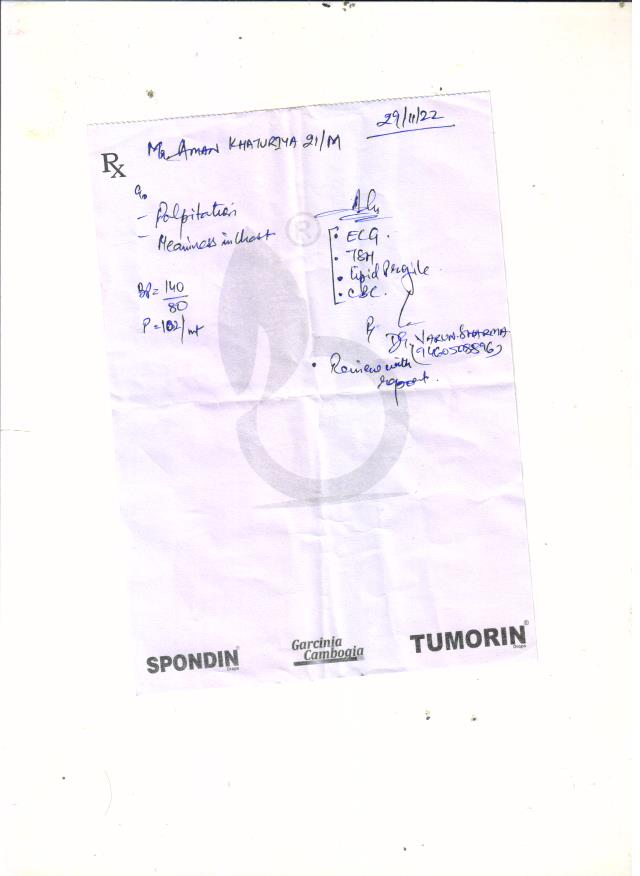 29/11/22
Rx
Mr. AMAN KHATURIYA 21/M
c/o
- Palpitation
- Heaviness in Chest
BP = 140/80
P = 102/mt
Adv
• ECG.
• TSH
• Lipid Profile
• CBC.
By
DR. VARUN SHARMA
• Review with
report.
®
SPONDIN®
Drops
Garcinia
Cambogia
TUMORIN®
Drops